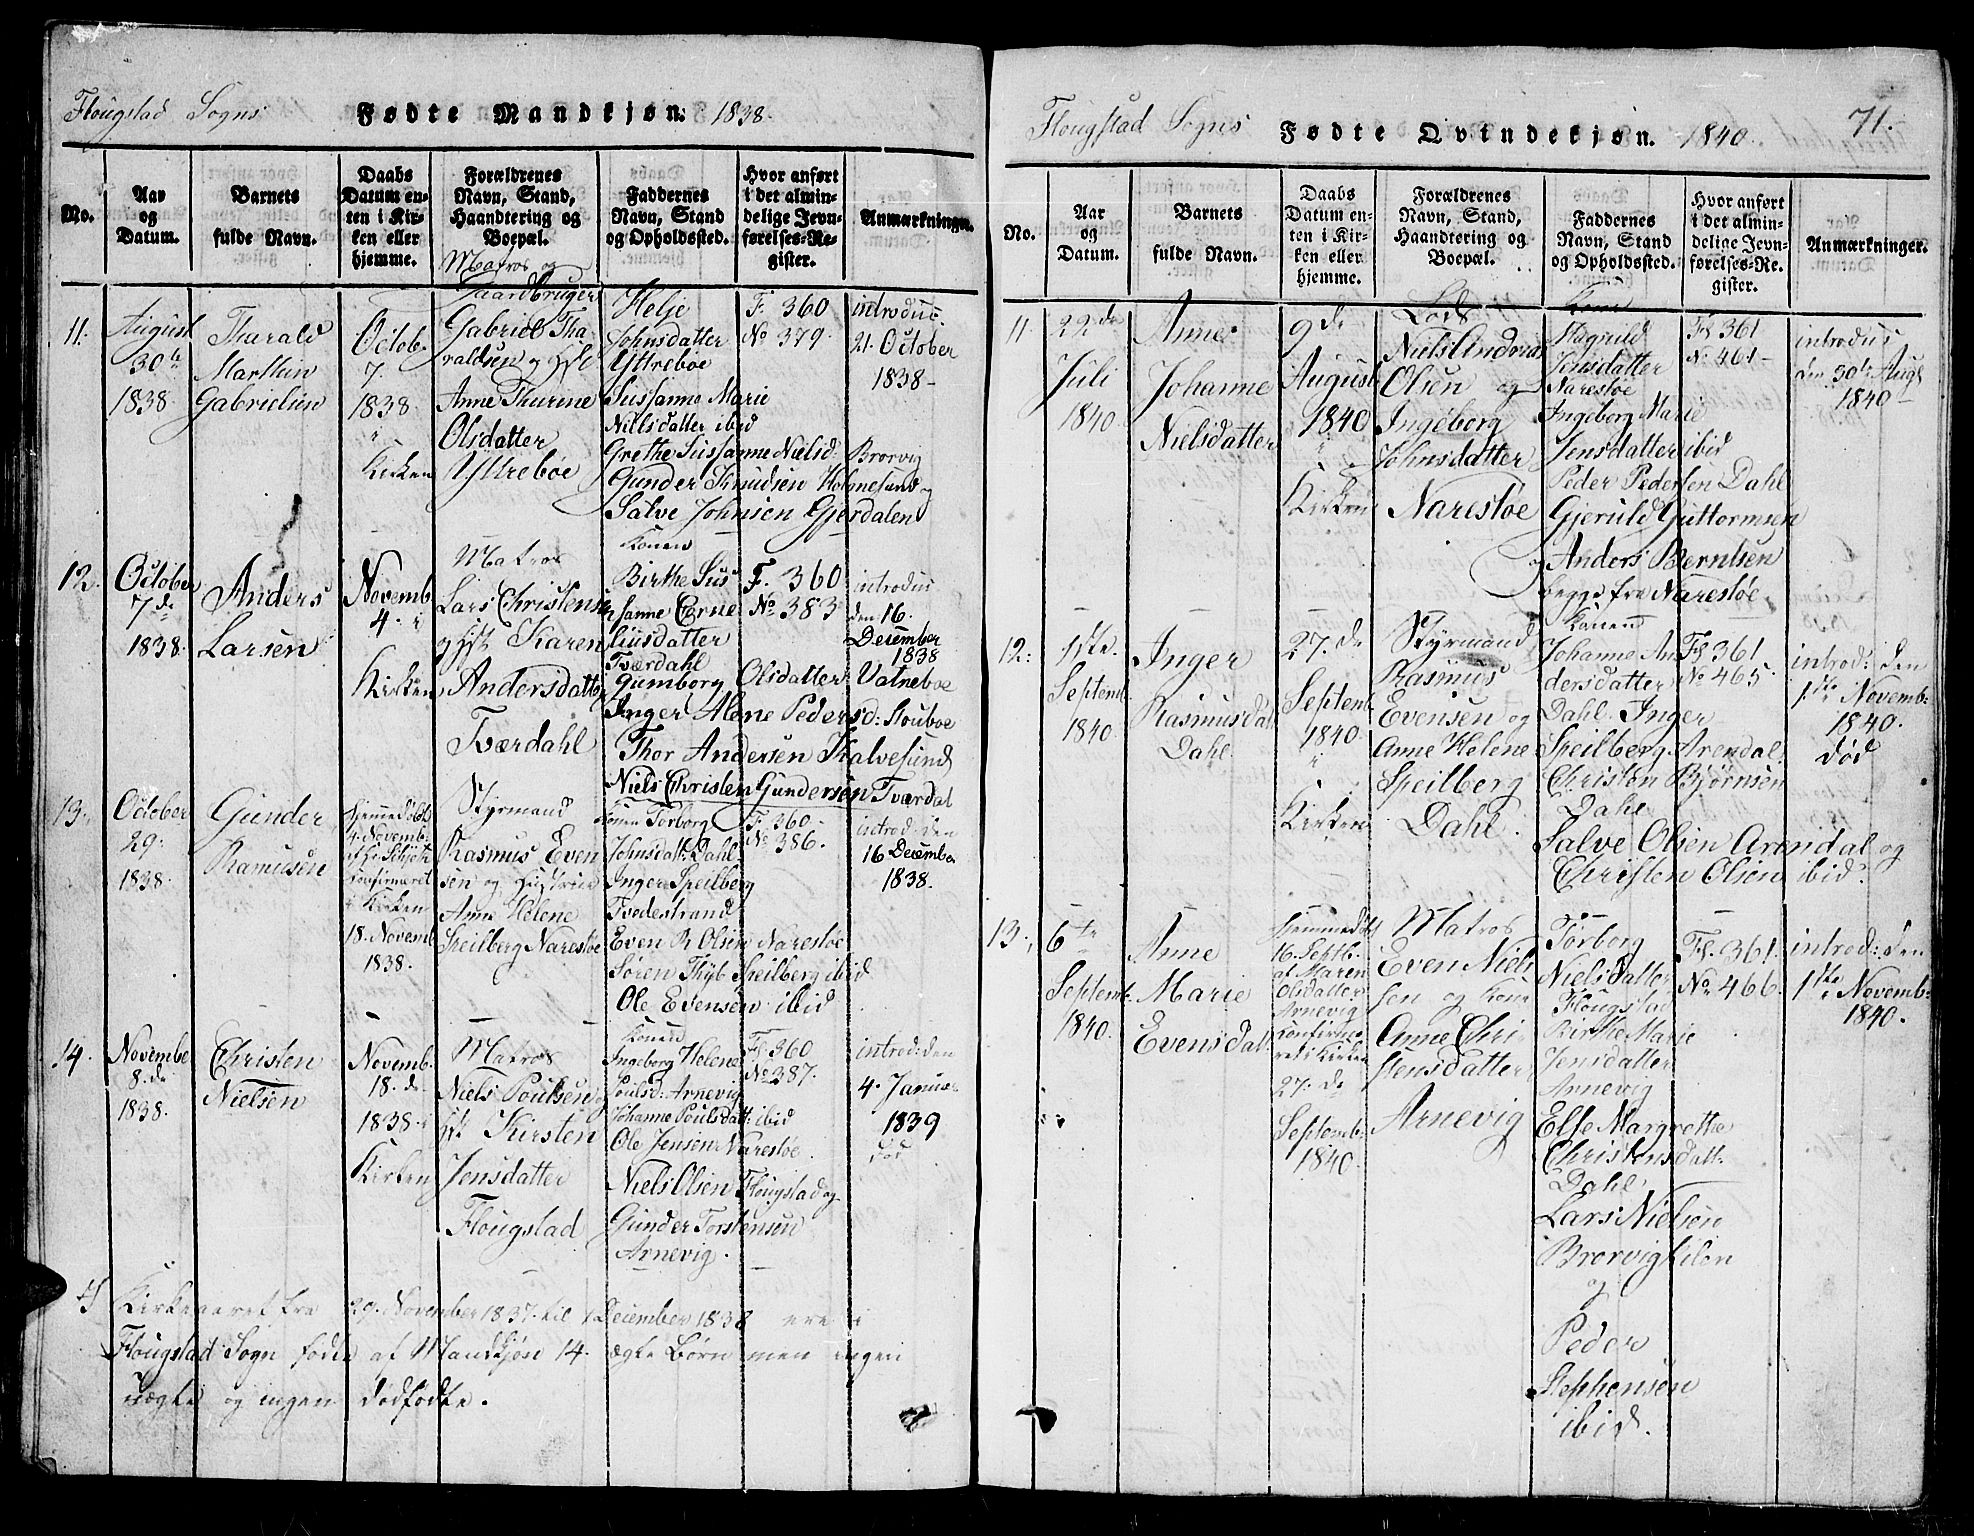 Flougstad Sogns Fødte Mandkjøn: 1838.
No.
Aar og Datum.
Barnets fulde Navn.
Daabs Datum enten i Kirken eller hjemme.
Forældrenes Navn, Stand, Haandtering og Boepæl.
Faddernes Navn, Stand og Opholdssted.
Hvor anført i det almindelige Jevnførelses-Register.
Anmærkninger.
11.
August
30te
1838
Tharald
Marthin
Gabrielsen
Octob:
7.
1838
i
Kirken
Matros og
Gaardbruger
Gabriel Tha-
raldsen og Hst
Anne Thurine
Olsdatter
Yttrebøe
Helje
Johnsdatter
Yttrebøe
Sussanne Marie
Nielsdatter ibid
Grethe Sussanne Nielsd: Brorvig
Gunder Knudsen Holmesund og
Salve Johnsen Gjerdalen
F. 360
No 379.
introduc:
21. October
1838
12.
October
7de
1838.
Anders
Larsen
Novemb
4. i
Kirken
Matros
Lars Christensen
og Hst Karen
Andersdatter
Tværdahl
Konen
Birthe Sus
sanne Erne
liusdatter
Tværdahl
Gumborg Olsdatter Vatneboe
Inger Alene Pedersd: Stouboe
Thor Andersen Kalvesund
Niels Christen Gundersen Tværdal
F. 360
No 383
introdus
den 16.
December
1838
13.
October
29.
1838.
Gunder
Ramusen
Hjemmedøbt
4. Novemb:
Confirmeret
i Kirken
18. Novemb
1838.
Styrmand
Rasmus Even
sen og Hustrue
Anne Helene
Speilberg Narestøe
Konen Torborg
Johnsdatt: Dahl
Inger Speilberg
Tvedestrand
Even R Olsen Narestøe
Søren Thyb Speilberg ibid
Ole Evensen ibid
F. 360
No 386.
introd: den
16 Decembe
1838.
14.
Novembe
8. de
1838.
Christen
Nielsen
Novemb.
18. de
1838 i
Kirken
Matros
Niels Poulsen og
Hst Kirsten
Jensdatter
Flougstad
Konen
Ingeborg Helene
Poulsd: Arnevig
Johanne Poulsdatt: ibid
Ole Jensen Narestøe
Niels Olsen Flougstad og
Gunder Torstensen
Arnevig.
Fl 360
No 387.
introd: den
4. Janua
1839
død
I Kirkeaaret fra 29. November 1837 til 1 December 1838 ere i
Flougstad Sogn fødte af Mandkjøn 14 ægte Børn men ingen
uægte og ingen dødfødte.
Flougstad Sogns Fødte Qvindekjøn. 1840. 71.
No.
Aar og Datum.
Barnets fulde Navn.
Daabs Datum enten i Kirken eller hjemme.
Forældrenes Navn, Stand, Haandtering og Boepæl.
Faddernes Navn, Stand og Opholdssted.
Hvor anført i det almindelige Jevnførelses-Register.
Anmærkninger.
11
22de
Juli
1840
Anne
Johanne
Nielsdatter
9de
August
1840
i
Kirken
Lods
Niels Andreas
Olsen og
Ingeborg
Johnsdatter
Narestøe
Kone
Magnild
Jensdatter
Narestøe
Ingeborg Marie
Jensdatter ibid
Peder Pedersen Dahl
Gjeruld Guttormsen
og Anders Berntsen
begge fra Narestøe
Fl 361
No 461
introdus
den 30te Augs
1840
12.
1ste
Septemb.
1840
Inger
Rasmusdat
Dahl.
27. de
Septemb
1840
i
Kirken
Styrmand
Rasmus
Evensen og
Anne Helene
Speilberg
Dahl.
Konen
Johanne An
dersdatter
Dahl. Inger
Speilberg Arendal.
Christen Bjørnsen
Dahl
Salve Olsen Arendal og
Christen Olsen ibid.
Fl 361
No 465.
introd: den
1ste Novemb:
1840.
død
13.
6te
Septemb:
1840.
Anne
Marie
Evensdat
Hjemmedøbt
16. Septb.
af Maren
Olsdatter
Arnevig
Confirme-
ret i Kirken
27. de
Septemb:
1840.
Matros
Even Niel
sen og Kone
Anne Chri
stensdatter
Arnevig
Torborg
Nielsdatter
Flougstad
Birthe Marie
Jensdatter
Arnevig
Else Margrethe
Christensdatt:
Dahl
Lars Nielsen
Brorvigkilen
og
Peder
Stephensen
ibid.
Fl. 361.
No 466.
introd: den
1ste Novemb:
1840.